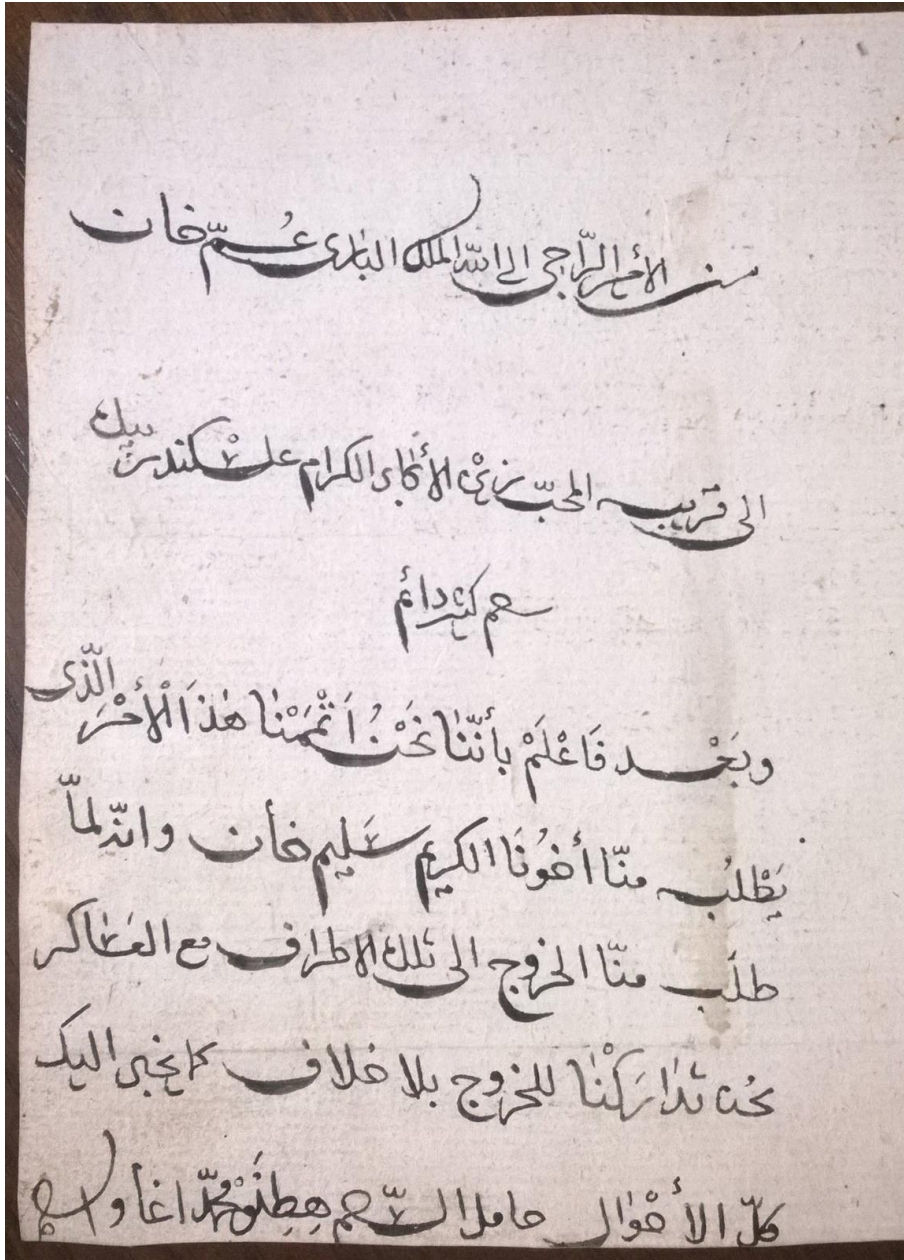 من الأمير الراجى الى الله الملك البارى عُمّ خان
الى قريبه المحبّ زين الأكابر الكرام على سْكندر بيك
سم كثير دائم
وبَعْد فَاعْلَمْ بأنّنا نَحْنُ اَتْمَمْنا هٰذَا الْأَمْرَ الّذى
يَطْلُب منّا أخُونَا الكريم سَليم خان وانّه لماّ
طلَب منّا الخروج الى تلك الاطراف مع العساكر
نحن تدٰارَكْنٰا للخروج بلا خلاف كما يخبر اليك
كلّ الأحْوٰال حامل السّم محمّد اغا و